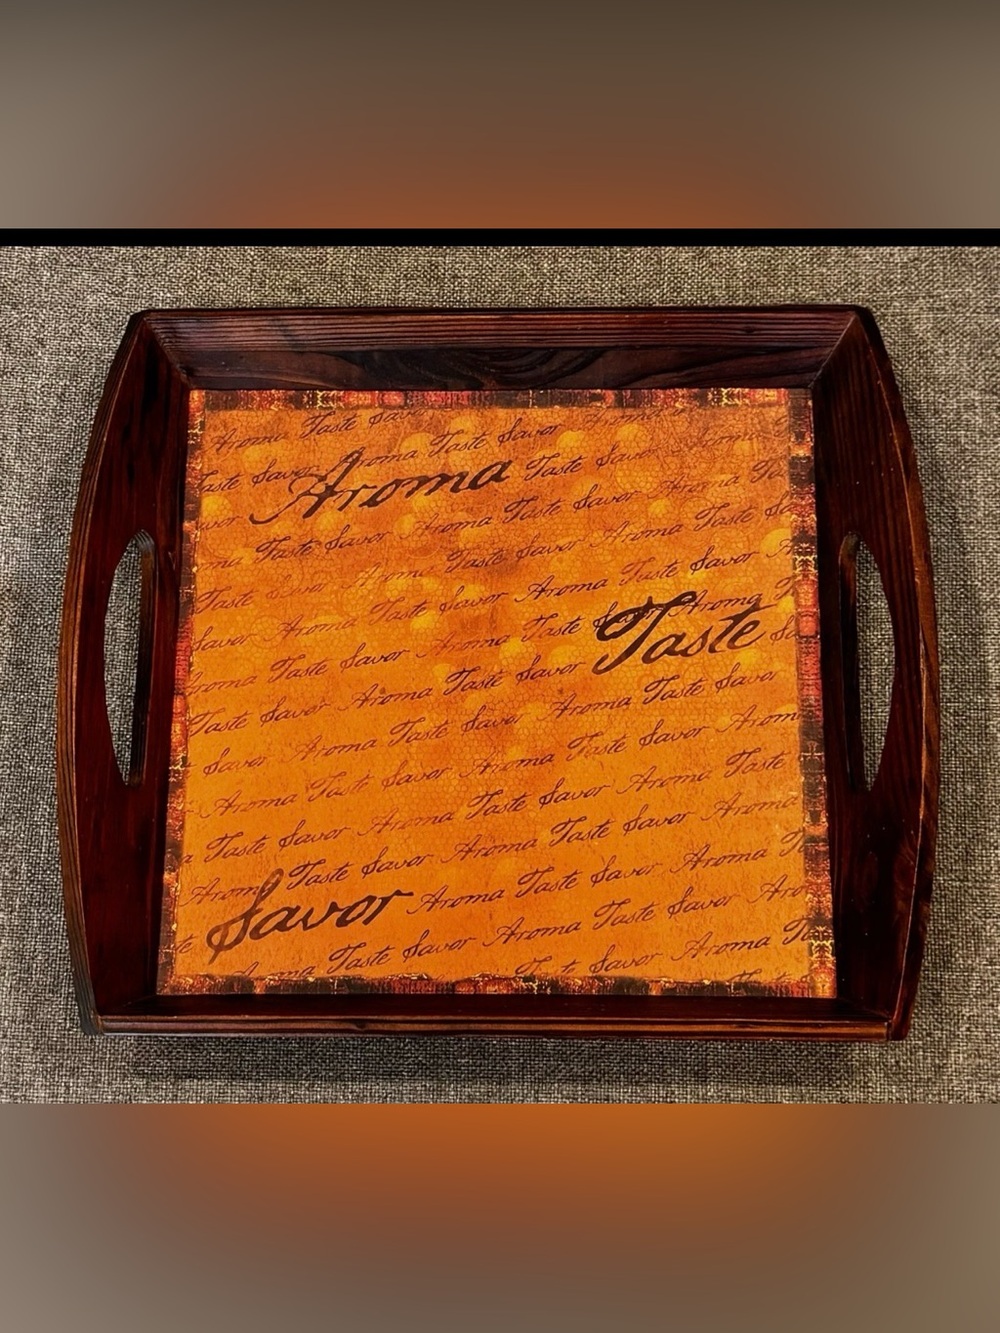 Aroma Taste Savor
Taste Savor Aroma Taste Savor Aroma
Aroma
Savor Taste Savor Aroma
Taste Savor Aroma Taste Savor Aroma Ta
Taste Savor Aroma Taste Savor Aroma Taste Sa
Savor Aroma Taste Savor Aroma Taste Savor A
Aroma Taste Savor Aroma Taste Savor Aroma T
Taste
Taste Savor Aroma Taste Savor Sa
Savor Aroma Taste Savor Aroma Taste Savor
Aroma Taste Savor Aroma Taste Savor Aroma
a Taste Savor Aroma Taste Savor Aroma Taste
Aroma Taste Savor Aroma Taste Savor Aroma
Savor
te Aroma Taste Savor Aroma T
Aroma Taste Savor Aroma Taste Savor Aro
Savor Aroma Ta